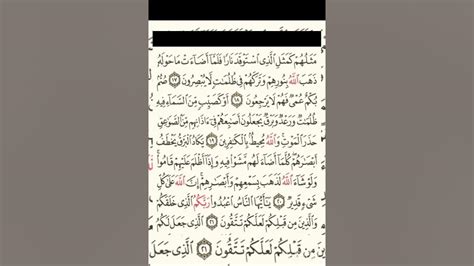 مَثَلُهُمْ كَمَثَلِ الَّذِي اسْتَوْقَدَ نَارًا فَلَمَّا أَضَاءَتْ مَا حَوْلَهُ
ذَهَبَ اللَّهُ بِنُورِهِمْ وَتَرَكَهُمْ فِي ظُلُمَاتٍ لَا يُبْصِرُونَ ١٧ صُمٌّ
بُكْمٌ عُمْيٌ فَهُمْ لَا يَرْجِعُونَ ١٨ أَوْ كَصَيِّبٍ مِنَ السَّمَاءِ فِيهِ
ظُلُمَاتٌ وَرَعْدٌ وَبَرْقٌ يَجْعَلُونَ أَصَابِعَهُمْ فِي آذَانِهِمْ مِنَ الصَّوَاعِقِ
حَذَرَ الْمَوْتِ وَاللَّهُ مُحِيطٌ بِالْكَافِرِينَ ١٩ يَكَادُ الْبَرْقُ يَخْطَفُ
أَبْصَارَهُمْ كُلَّمَا أَضَاءَ لَهُمْ مَشَوْا فِيهِ وَإِذَا أَظْلَمَ عَلَيْهِمْ قَامُوا
وَلَوْ شَاءَ اللَّهُ لَذَهَبَ بِسَمْعِهِمْ وَأَبْصَارِهِمْ إِنَّ اللَّهَ عَلَى كُلِّ
شَيْءٍ قَدِيرٌ ٢٠ يَا أَيُّهَا النَّاسُ اعْبُدُوا رَبَّكُمُ الَّذِي خَلَقَكُمْ
وَالَّذِينَ مِنْ قَبْلِكُمْ لَعَلَّكُمْ تَتَّقُونَ ٢١ الَّذِي جَعَلَ لَكُمُ
ينَ مِنْ قَبْلِكُمْ لَعَلَّكُمْ تَتَّقُونَ ٢١ الَّذِي جَعَلَ